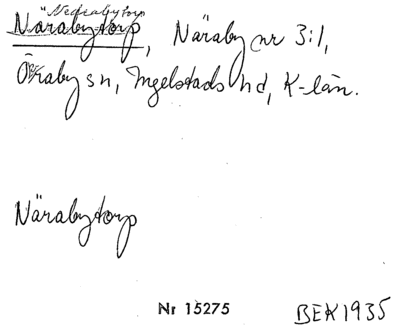 "Nedrabytorp"
Närabytorp, Näraby nr 3:1,
Öraby sn, Ingelstads hd, K-län.
Närabytorp
Nr 15275 BEK 1935